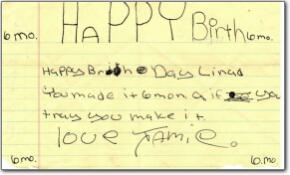 6 mo. HAPPY Birth 6 mo.
Happy Day Linda
You made it 6 mon if you
tray you make it
love Jamie.
6 mo. 6 mo.